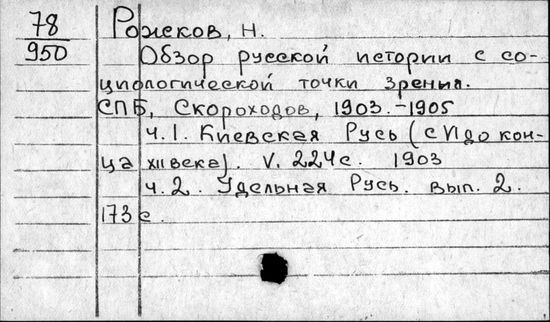 78
950
Рожков, Н.
Обзор русской истории с со-
циологической точки зрения.
СПБ, Скороходов, 1903.-1905
ч.1. Киевская Русь (с VI до кон-
ца XII века). V. 224с. 1903
ч.2. Удельная Русь. вып. 2.
173 с.